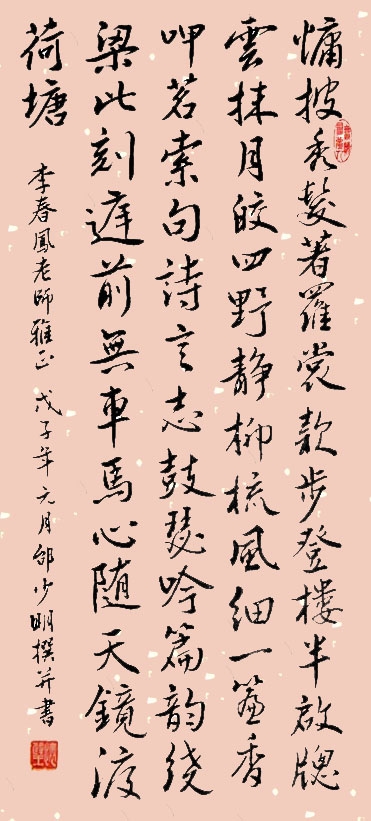 慵披秀髮著羅裳款步登樓半啟牕
雲抹月皎四野靜柳梳風細一簾香
呷茗索句詩言志鼓瑟吟篇韵繞
梁此刻庭前無車馬心隨天鏡渡
荷塘
李春鳳老師雅正 戊子年元月邵少明撰并書